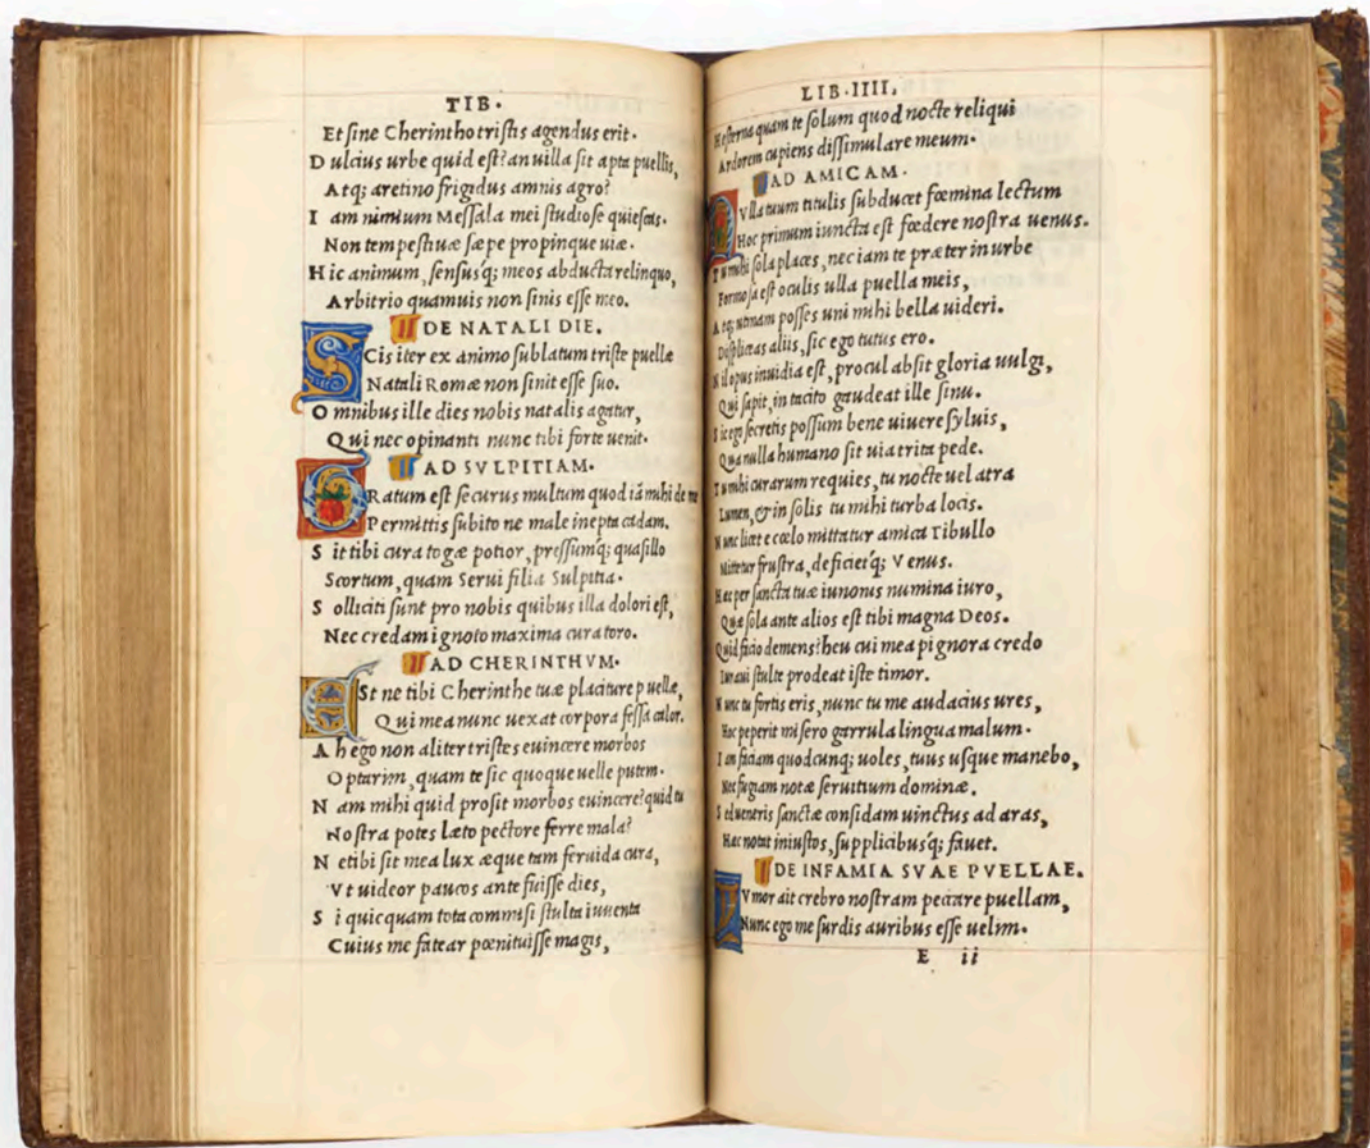 TIB.
Et sine Cherintho tristis agendus erit.
D ulcius urbe quid est? an uilla sit apta puellis,
Atq; aretino frigidus amnis agro?
I am nimium Messala mei studiose quiescas.
Non tempestiuæ sæpe propinque uiæ.
H ic animum, sensusq́; meos abducta relinquo,
Arbitrio quamuis non sinis esse meo.
DE NATALI DIE.
SCis iter ex animo sublatum triste puellæ
Natali Romæ non sinit esse suo.
O mnibus ille dies nobis natalis agatur,
Qui nec opinanti nunc tibi forte uenit.
AD SVLPITIAM.
GRatum est securus multum quod iã mihi de me
Permittis subito ne male inepta cadam.
S it tibi cura togæ potior, pressumq́; quasillo
Scortum, quam Serui filia Sulpitia.
S olliciti sunt pro nobis quibus illa dolori est,
Nec credam ignoto maxima cura toro.
AD CHERINTHVM.
ESt ne tibi Cherinthe tuæ placiture puellæ,
Qui mea nunc uexat corpora fessa calor.
A h ego non aliter tristes euincere morbos
Optarim, quam te sic quoque uelle putem.
N am mihi quid prosit morbos euincere? quid tu
Nostra potes læto pectore ferre mala?
N e tibi sit mea lux æque tam feruida cura,
Vt uideor paucos ante fuisse dies,
S i quicquam tota commisi stulta iuuenta
Cuius me fatear pœnituisse magis,
LIB.IIII.
Hesterna quam te solum quod nocte reliqui
Ardorem cupiens dissimulare meum.
AD AMICAM.
NVlla tuum titulis subducet fœmina lectum
Hoc primum iuncta est fœdere nostra uenus.
T u mihi sola places, nec iam te præter in urbe
Formosa est oculis ulla puella meis,
A tq; utinam posses uni mihi bella uideri.
Displiceas aliis, sic ego tutus ero.
N il opus inuidia est, procul absit gloria uulgi,
Qui sapit, in tacito gaudeat ille sinu.
S ic ego secretis possum bene uiuere syluis,
Qua nulla humano sit uia trita pede.
T u mihi curarum requies, tu nocte uel atra
Lumen, & in solis tu mihi turba locis.
N unc licet e cœlo mittatur amica Tibullo
Mittetur frustra, deficietq́; Venus.
Hæc per sancta tuæ iunonis numina iuro,
Quæ sola ante alios est tibi magna Deos.
Quid facio demens? heu cui mea pignora credo
Iuraui stulte prodeat iste timor.
N unc tu fortis eris, nunc tu me audacius ures,
Hoc peperit misero garrula lingua malum.
I am faciam quodcunq; uoles, tuus usque manebo,
Nec fugiam notæ seruitium dominæ.
S ed ueneris sanctæ considam uinctus ad aras,
Hæc notat iniustos, supplicibusq́; fauet.
DE INFAMIA SVAE PVELLAE.
Vmor ait crebro nostram peccare puellam,
Nunc ego me surdis auribus esse uelim.
E ii